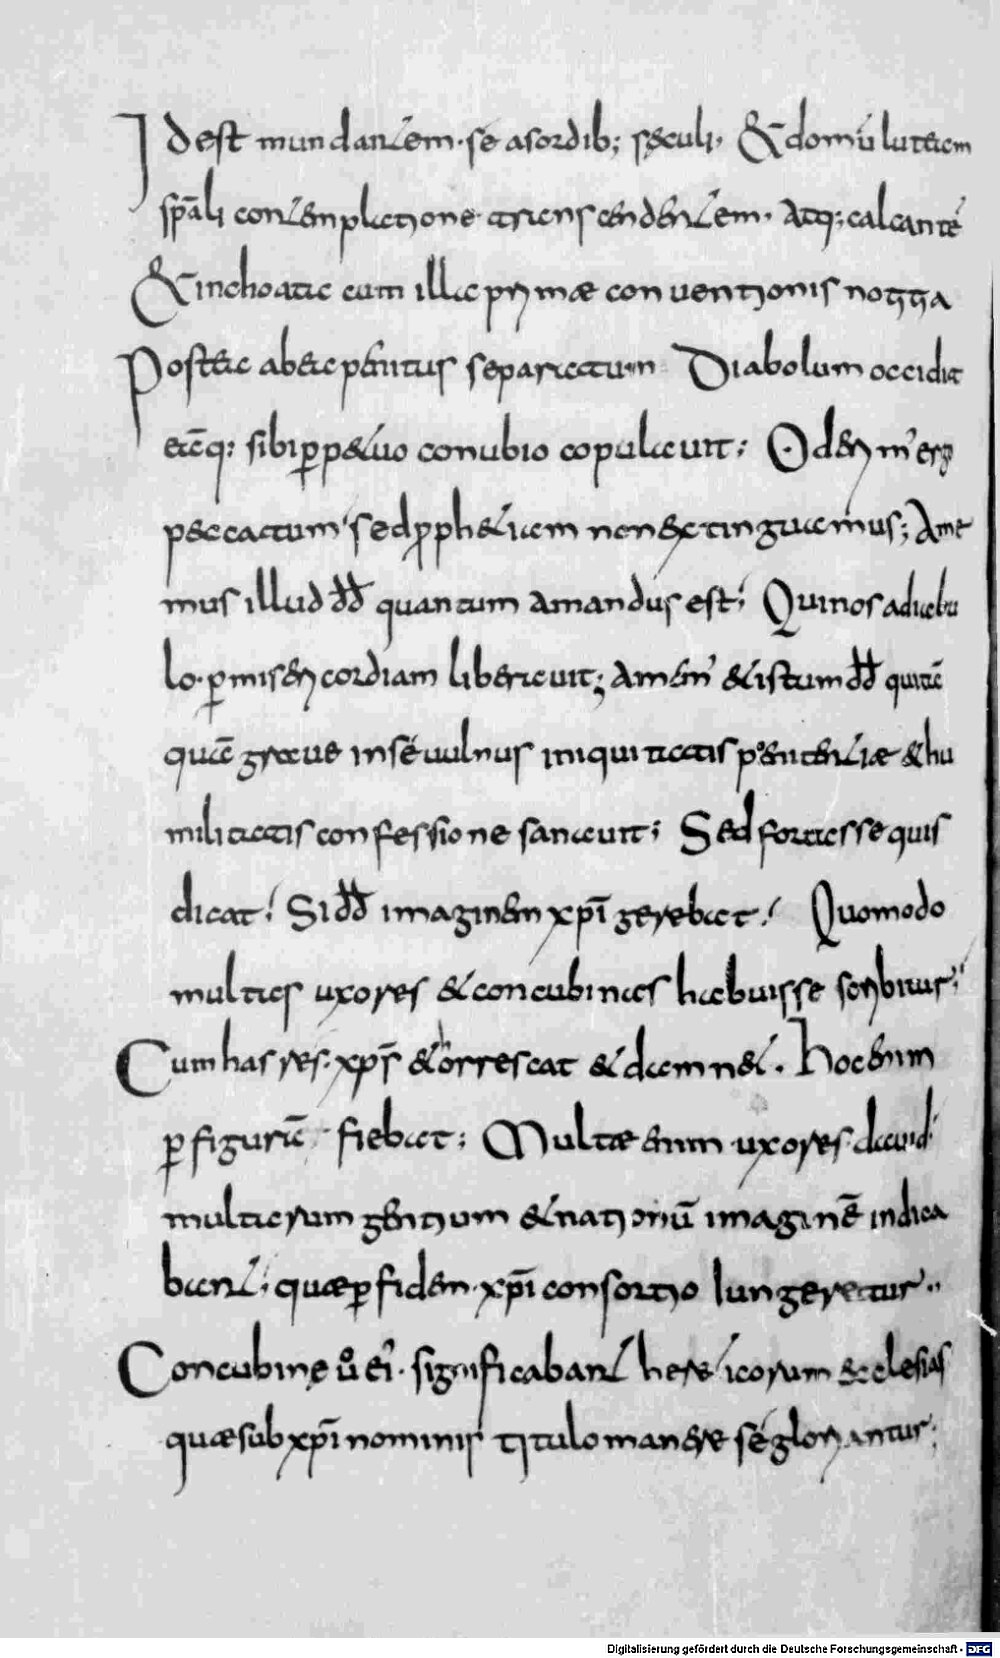 Id est mundantem · se asordib; sęculi · & domū luteam
sp̄ali contemplatione transcendentem · Atq; calcantē
& inchoata eum illa prima conventionis nogga
Postea abea penitus separatum Diabolum occidit
eāq: sibi ꝑpetuo conubio copulavit; Oderim' erg
peccatum' sed ꝓphetiam non extinguamus; Ame
mus illud dd̄ quantum amandus est; Qui nos adiabu
lo · ꝑ misericordiam liberavit; Amem' & istum dd̄ qui tā
quā grave in sé vulnus iniquitatis poenitentiae & hu
militatis confessione sanavit; Sed fortasse quis
dicat! Si dd̄ imaginem xp̄i gerebat! Quomodo
multas uxores & concubinas habuisse scribitur;
Cum has res · xp̄s & horrescat & damnet · Hoc enim
ꝑ figurā fiebat; Multae enim uxores david
multarum gentium & nationū imaginē indica
bant; quae ꝑ fidem · xp̄i consortio Iungeretur ··
Concubinę ůo ei' · significabant hereticorum ecclesias
quae sub xp̄i nominis titulo manere sé gloriantur;
Digitalisierung gefördert durch die Deutsche Forschungsgemeinschaft - DFG